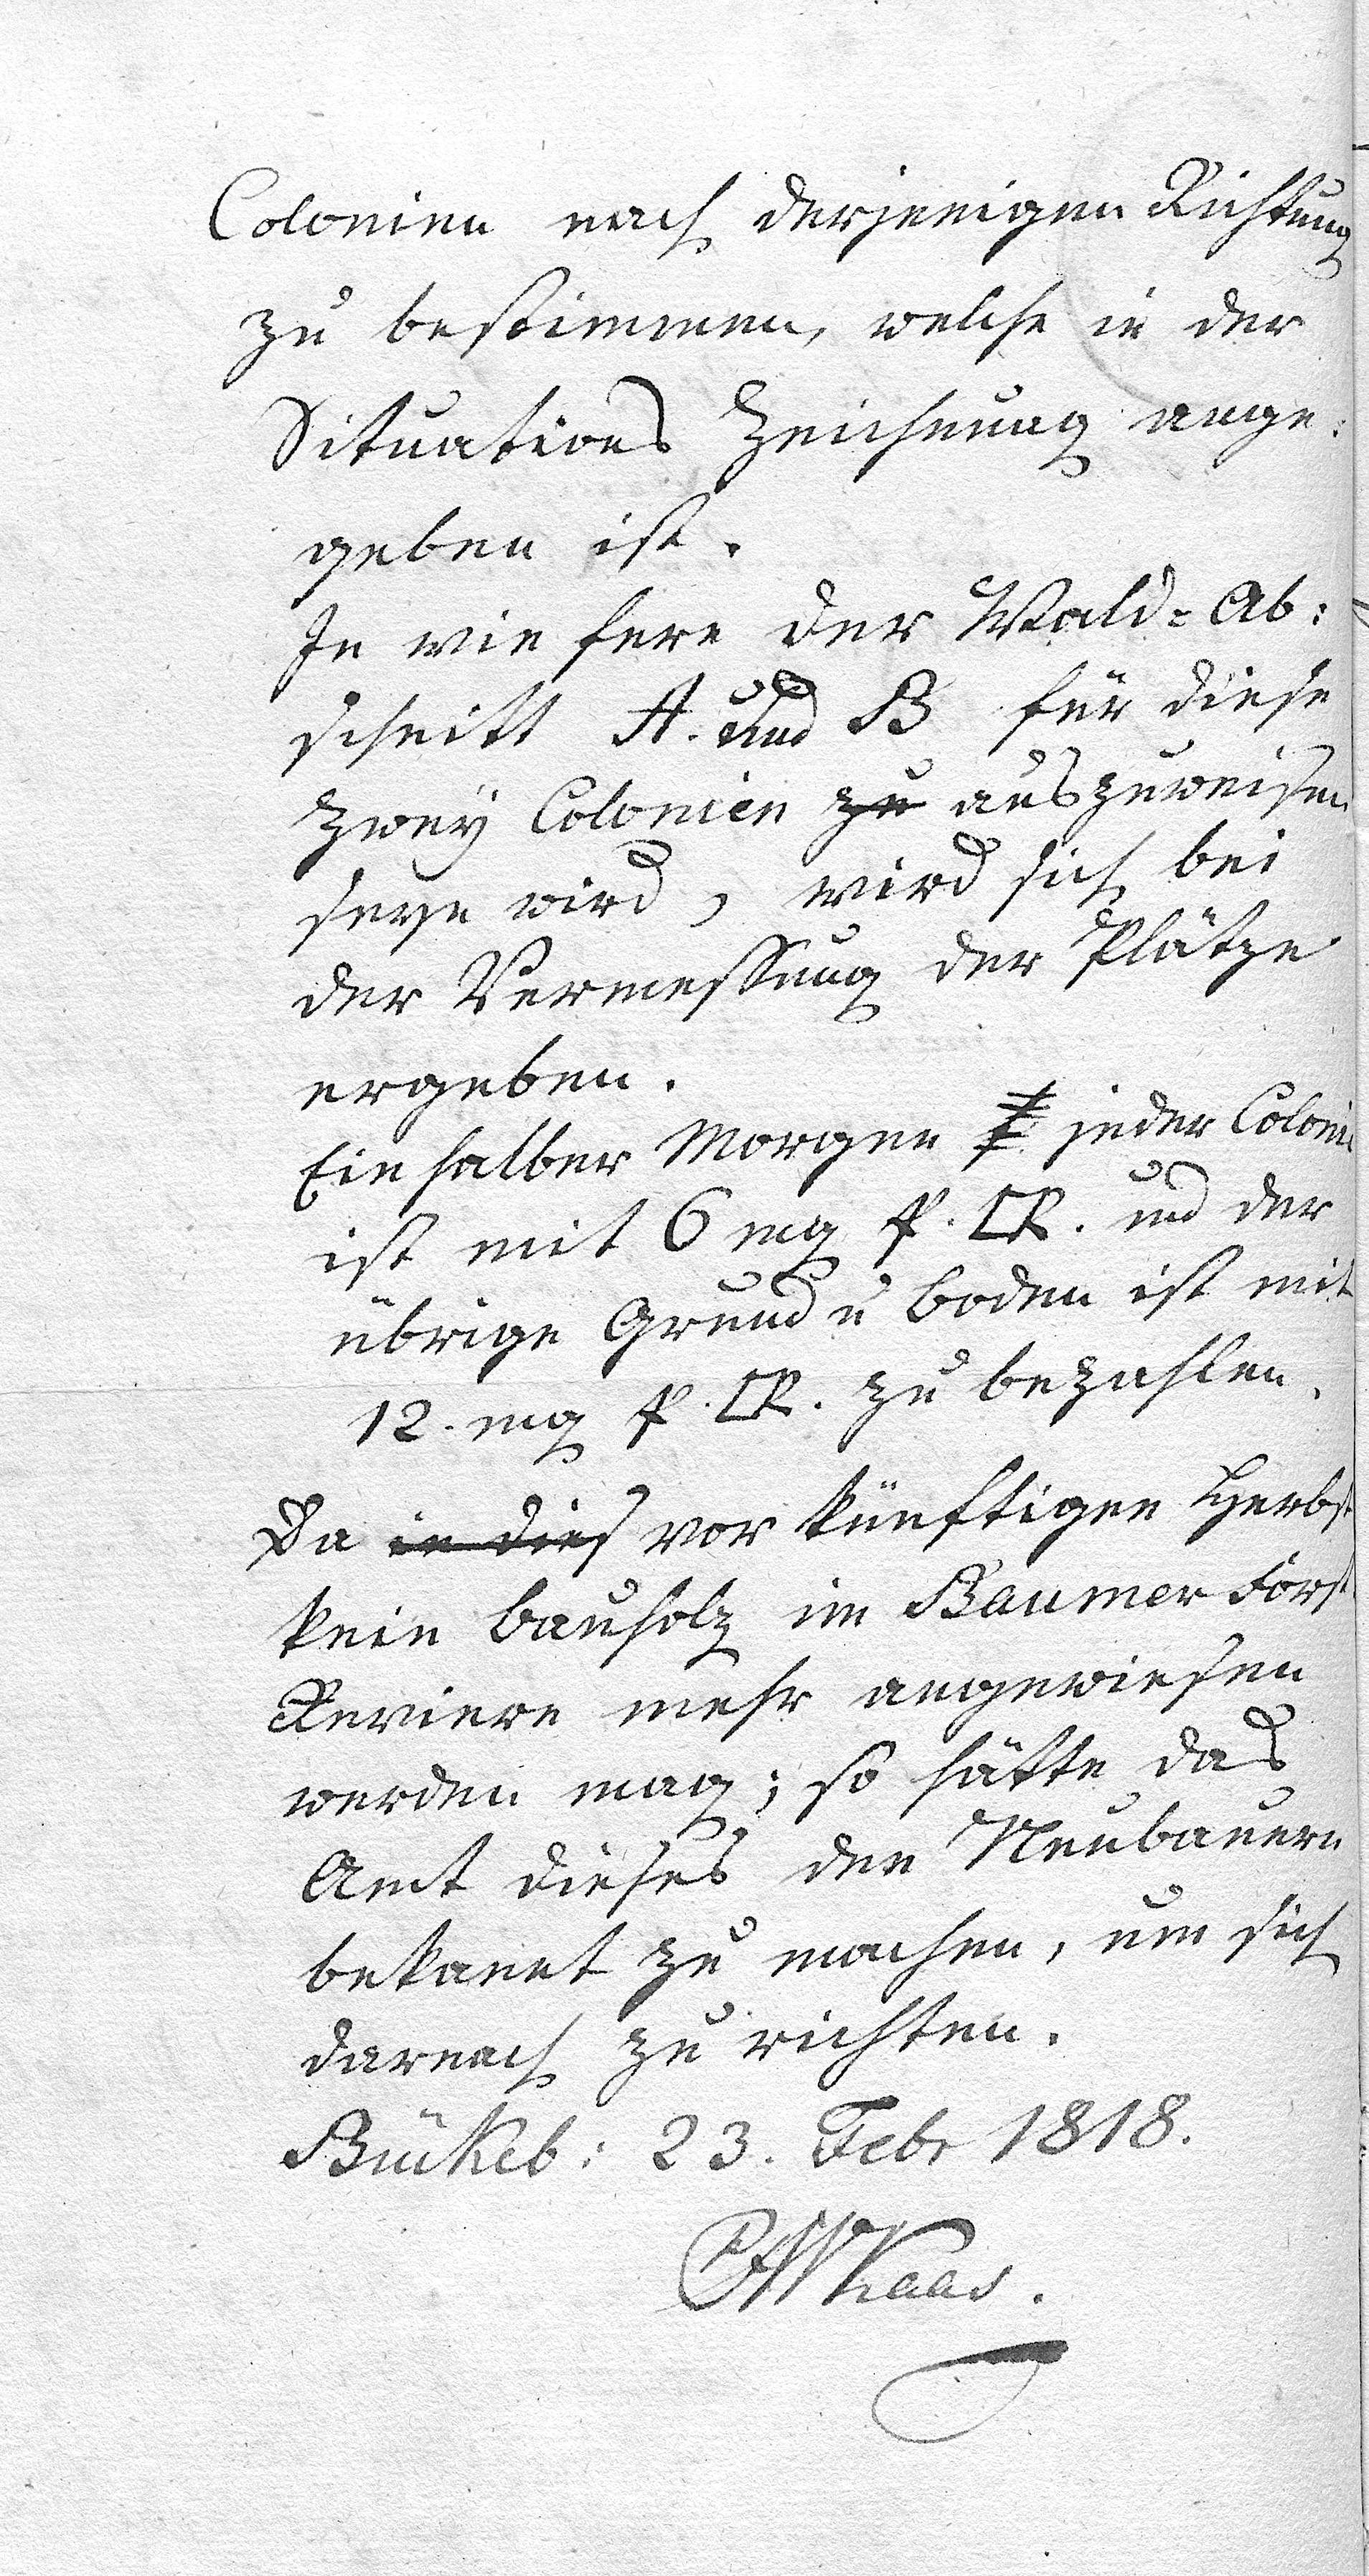 Colonien nach derjenigen Richtung
zu bestimmen, welche in der
Situations Zeichnung ange:
geben ist.
In wie fern der Wald-Ab:
schnitt A. und B für diese
zwey Colonien zu auszuweisen
seyn wird, wird sich bei
der Vermessung der Plätze
ergeben.
Ein halber Morgen jeder Colonie
ist mit 6 mg p. □R. und der
übrige Grund u Boden ist mit
12. mg p. □R. zu bezahlen.
Da in dies vor künftigen Herbst
kein Bauholz im Baumer Forst
Reviere mehr angewiesen
werden mag; so hätte das
Amt dieses den Neubauern
bekannt zu machen, um sich
darnach zu richten.
Bückeb: 23. Febr 1818.